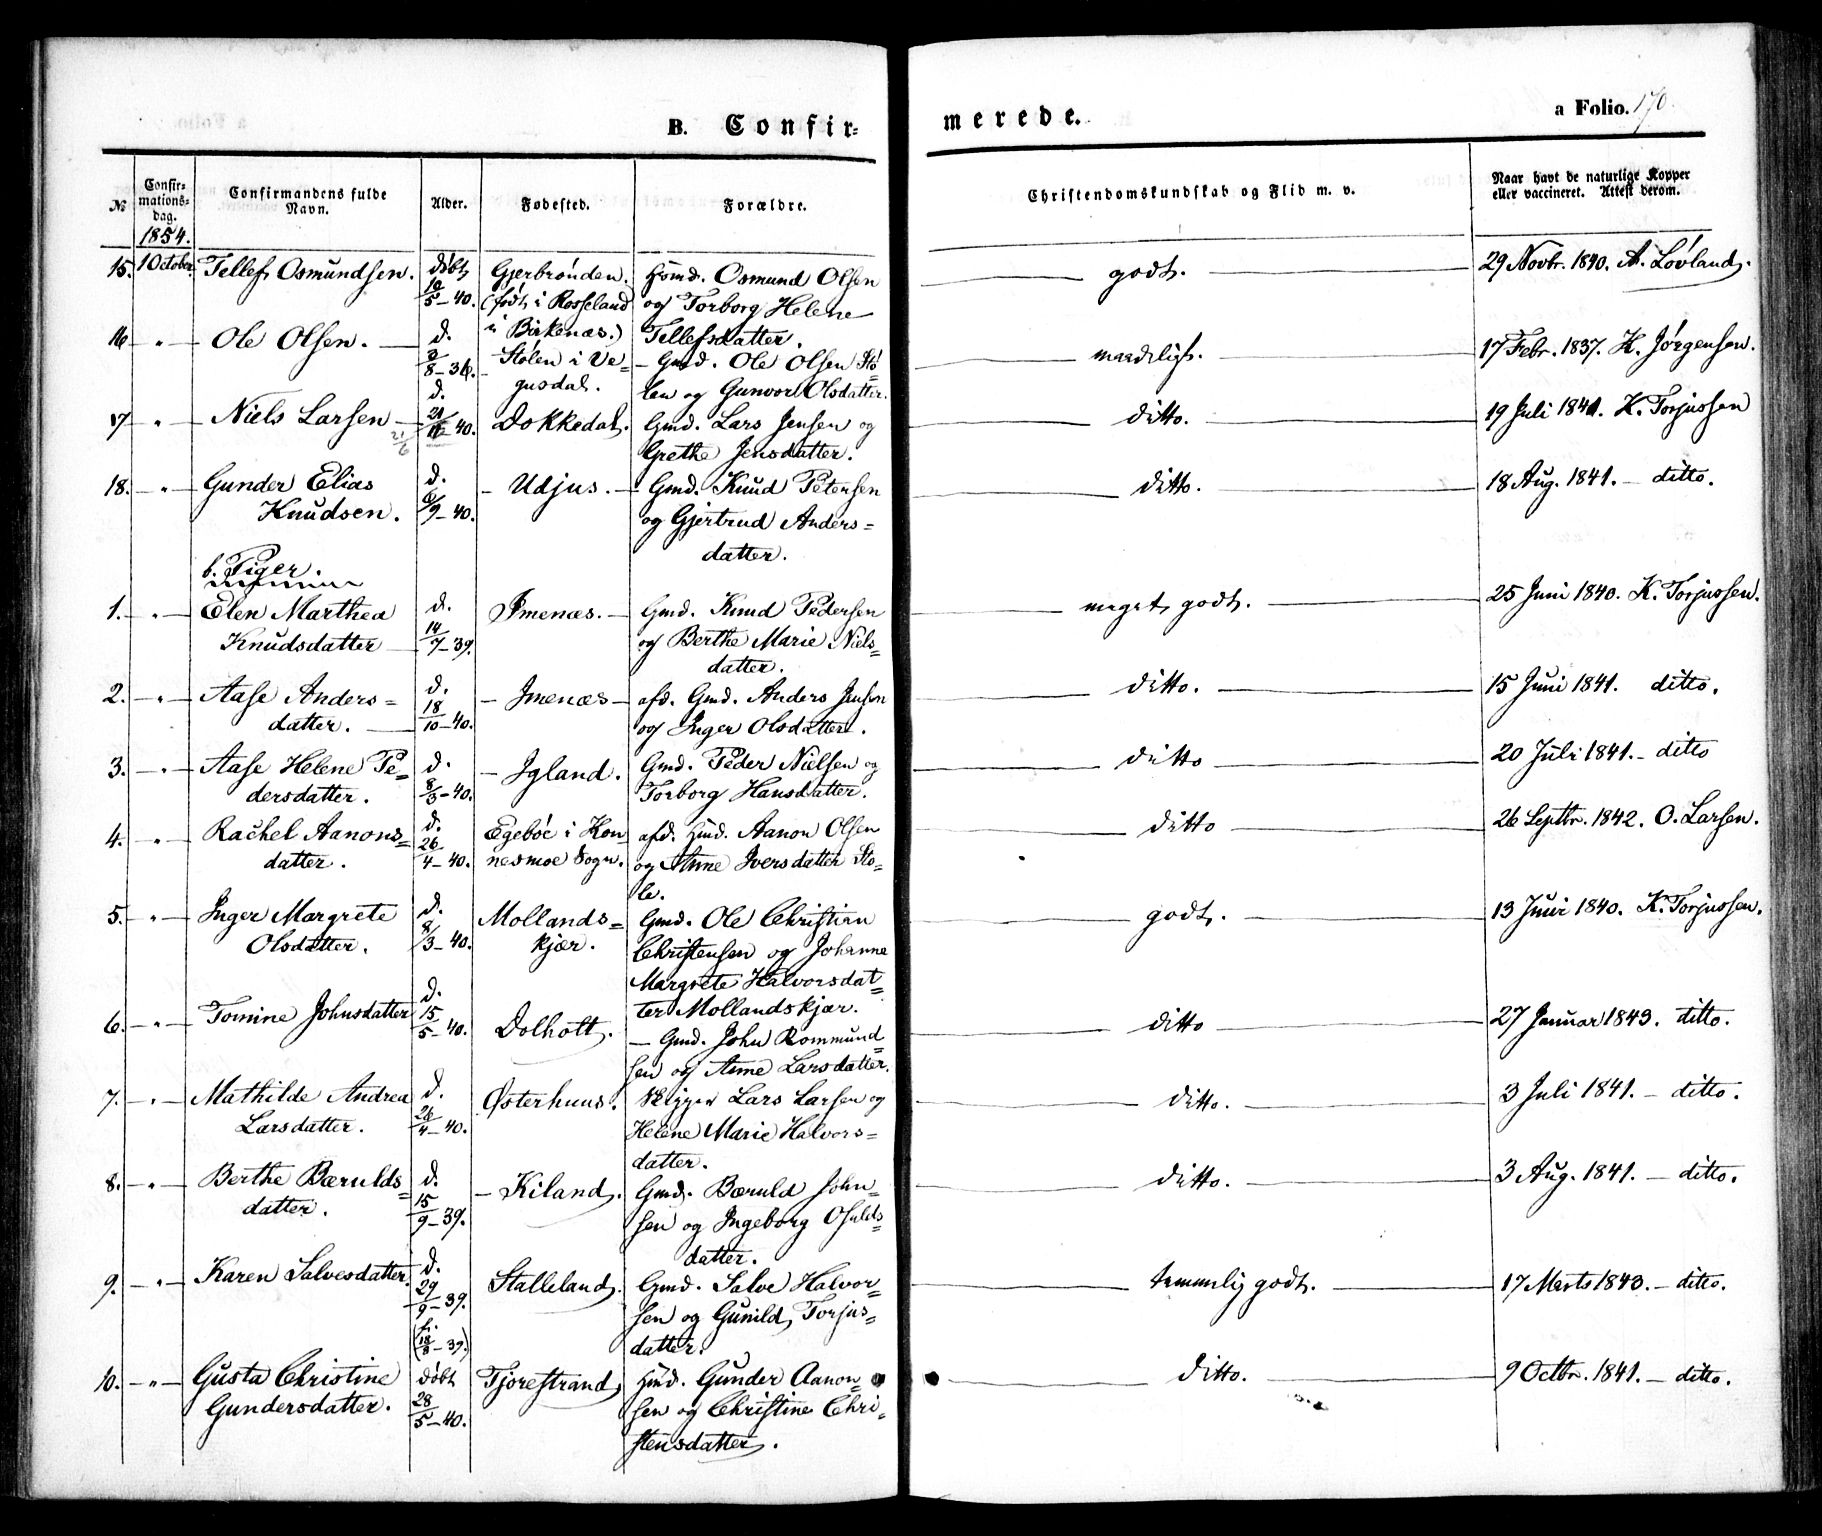 a Folio. 170.
B. Confir-
merede.
No
Confir-
mations-
dag.
1854.
Confirmandens fulde
Navn.
Alder.
Fødested.
Forældre.
Christendomskundskab og Flid m. v.
Naar havt de naturlige Kopper
eller vaccineret. Attest derom.
15. 1 October. Tellef Osmundsen. døbt 10/5-40. Gjerbrønden. (født i Rosseland i Birkenæs.)
Hsmd. Osmund Olsen
og Torborg Helene
Tellefsdatter.
godt. 29 Novbr. 1840. A. Løvland.
16. - " - Ole Olsen. d. 2/8-36. Stølen i Ve-
gusdal.
Gmd. Ole Olsen Stø-
len og Gunvor Olsdatter.
maadeligt. 17 Febr. 1837. H. Jørgensen.
17 - " - Niels Larsen d. 21/6 - 40. Dokkedal.
21/6
Gmd. Lars Jensen og
Grethe Jensdatter.
ditto. 19 Juli 1841. K. Torjussen
18. - " - Gunder Elias
Knudsen. d. 6/9-40. Udjus.
Gmd. Knud Petersen
og Gjertrud Anders-
datter.
ditto. 18 Aug. 1841. - ditto.
b. Piger.
1. - " - Elen Marthea
Knudsdatter d. 14/7-39. Imenæs.
Gmd. Knud Pedersen
og Berthe Marie Niels-
datter.
meget godt. 25 Juni 1840. K. Torjussen.
2. - " - Aase Anders-
datter. d. 18/10-40. Imenæs
afd. Gmd. Anders Jensen
og Inger Olsdatter.
ditto. 15 Juni 1841. ditto.
3. - " - Aase Helene Pe-
dersdatter. d. 8/3-40. Igland.
Gmd. Peder Nielsen og
Torborg Hansdatter.
ditto 20 Juli 1841. - ditto
4. - " - Rachel Aanons-
datter. d. 26/4-40. Egebøe i Kon-
nesmoe Sogn.
afd. Hmd. Aanon Olsen
og Anne Iversdatter Stø-
le.
ditto 26 Septbr. 1842. O. Larsen.
5. - " - Inger Margrete
Olsdatter. d. 8/3-40. Mollands-
kjær.
Gmd. Ole Christian
Christensen og Johanne
Margrete Halvorsdat-
ter Mollandskjær.
godt. 13 Juni 1840. K. Torjussen.
6. - " - Tomine Johnsdatter d. 15/5-40. Dolholt.
- Gmd. John Rommund-
sen og Anne Larsdatter.
ditto 27 Januar 1843. ditto.
7. - " - Mathilde Andrea
Larsdatter. d. 26/4-40. Østerhuus.
Skipper Lars Larsen og
Helene Marie Halvors-
datter.
ditto. 3 Juli 1841. - ditto.
8. - " - Berthe Bærulds-
datter. d. 15/9-39. Kiland.
Gmd. Bæruld John-
sen og Ingeborg Osulds-
datter.
ditto. 3 Aug. 1841. - ditto.
9. - " - Karen Salvesdatter. d. 29/9-39. (f. 18/8-39.) Stalleland.
Gmd. Salve Halvor-
sen og Gunild Torjus-
datter.
temmelig godt. 17 Marts 1843. - ditto.
10. - " - Gusta Christine
Gundersdatter. døbt 28/5-40. Tjorestrand
Hmd. Gunder Aanon-
sen og Christine Chri-
stensdatter.
ditto. 9 Octbr. 1841. - ditto.